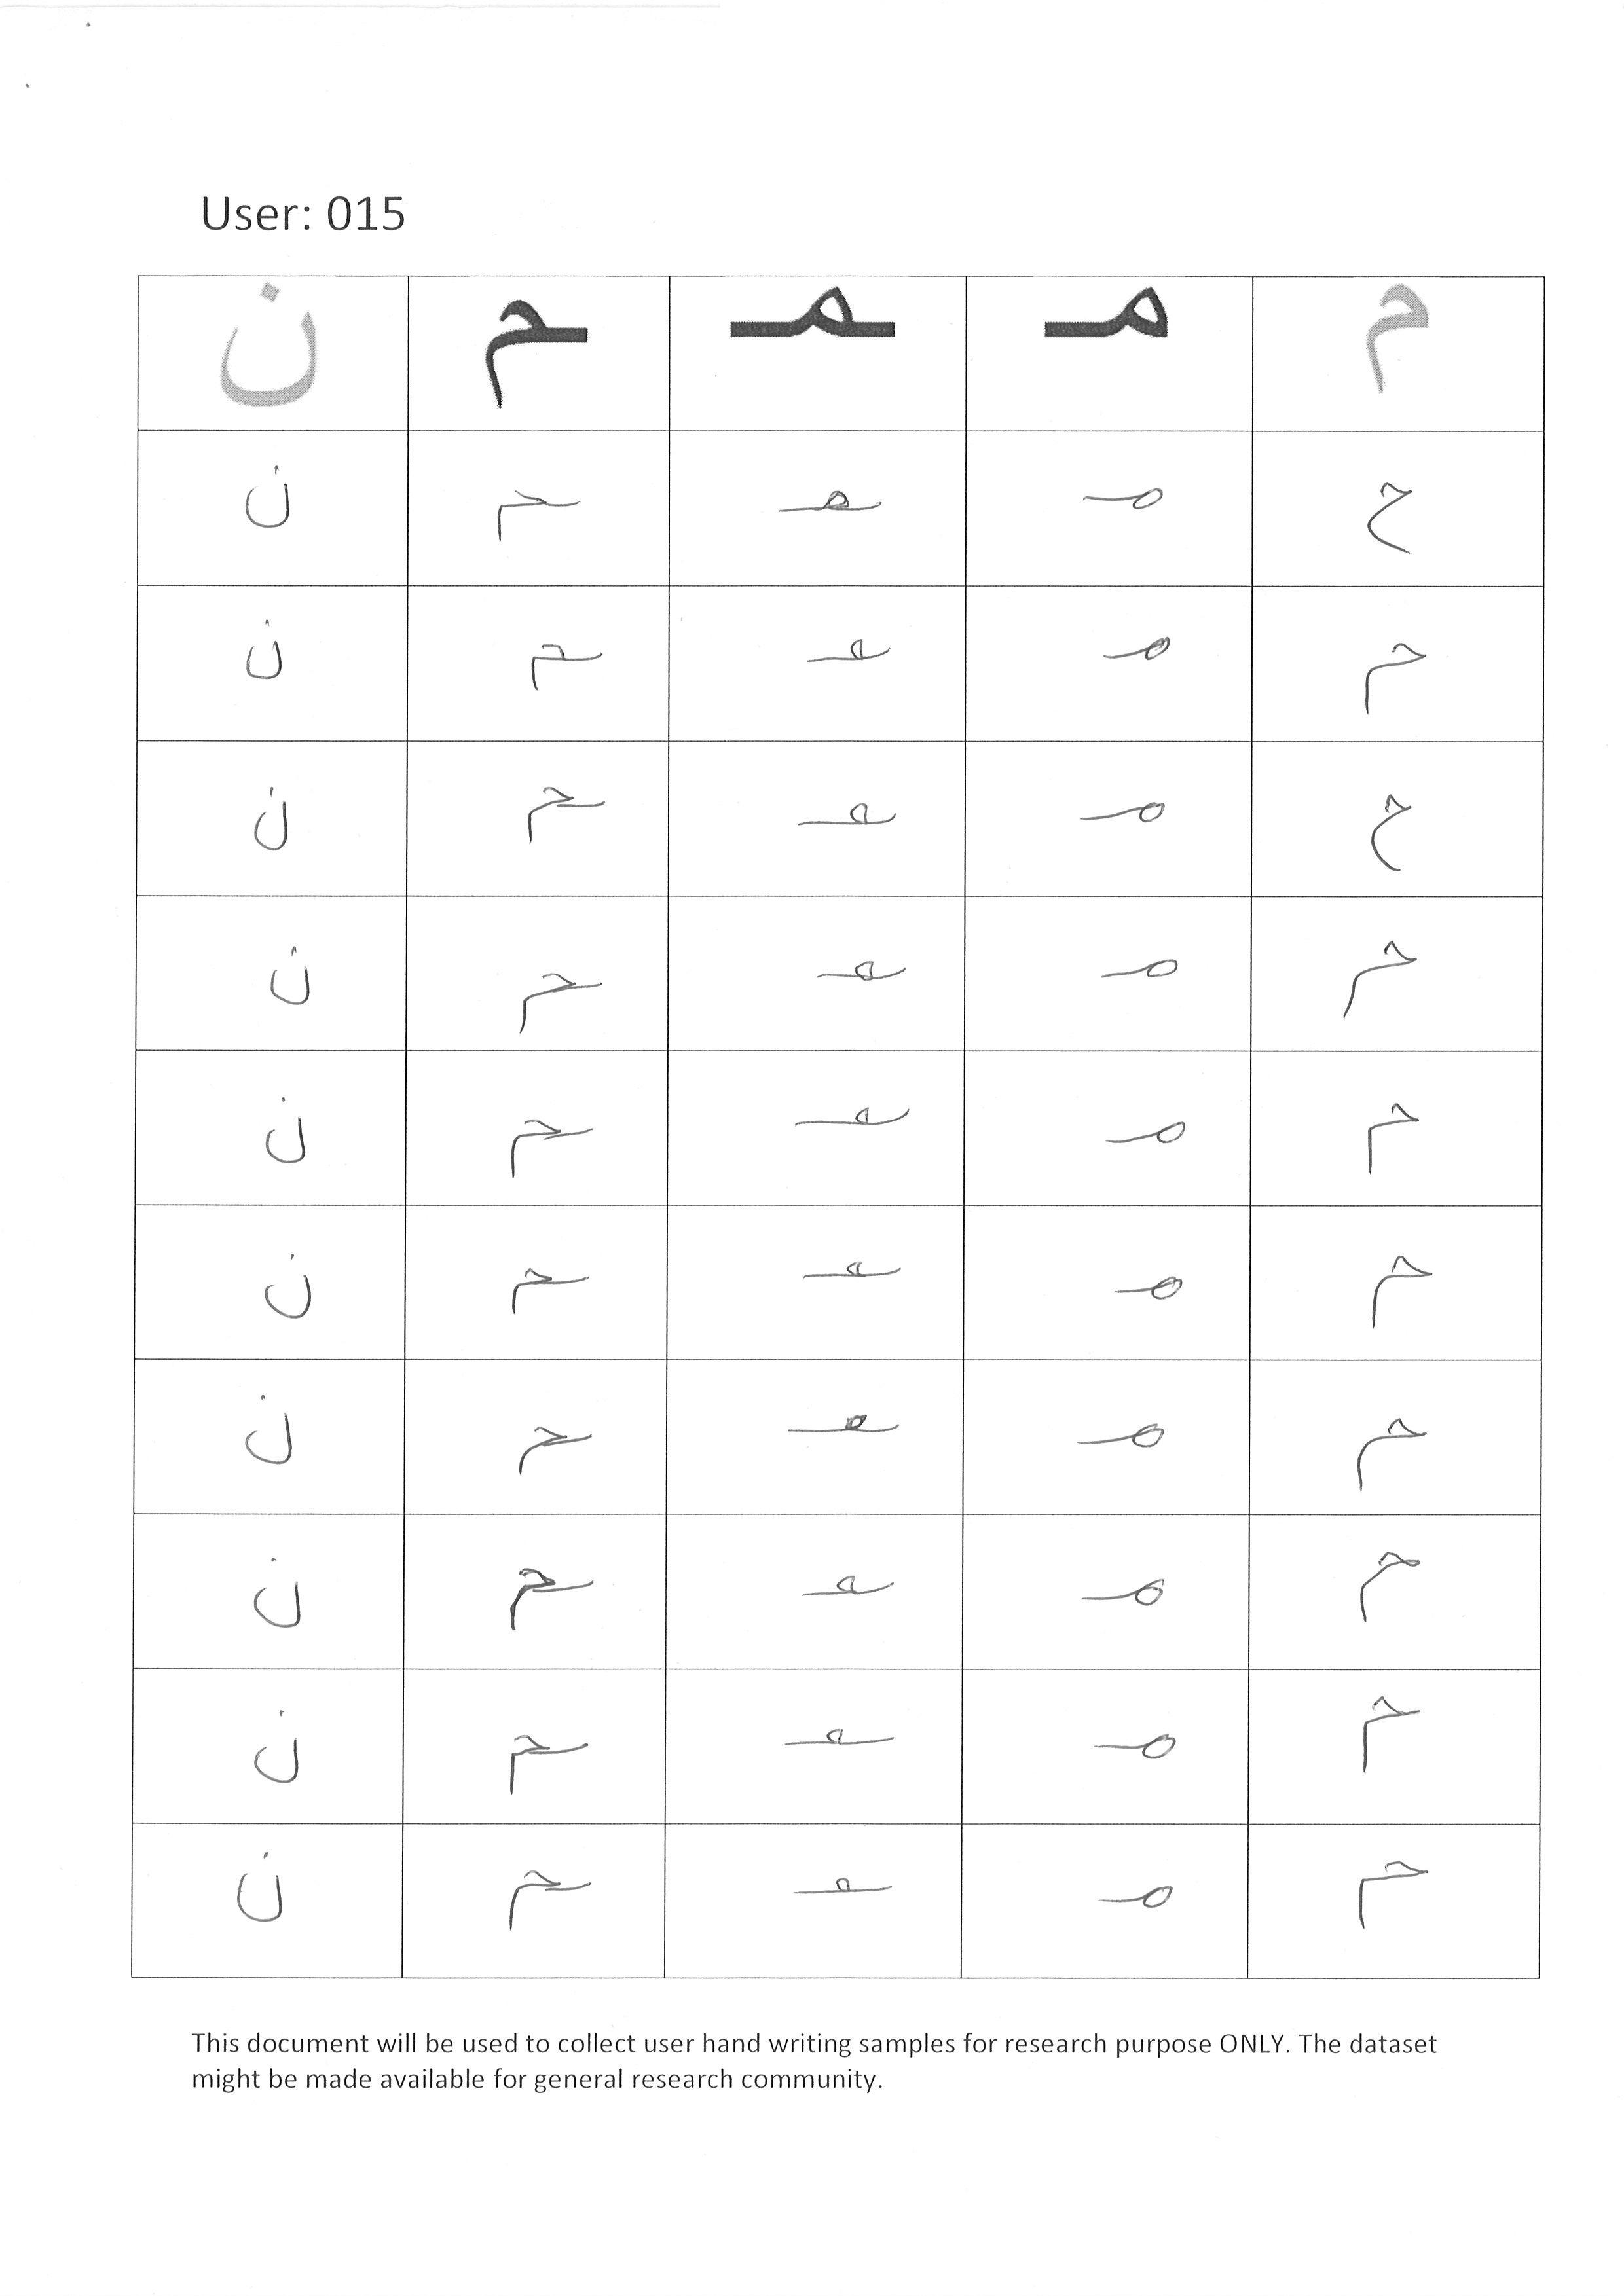 User: 015
م مـ ـمـ ـم ن
م مـ ـمـ ـم ن
م مـ ـمـ ـم ن
م مـ ـمـ ـم ن
م مـ ـمـ ـم ن
م مـ ـمـ ـم ن
م مـ ـمـ ـم ن
م مـ ـمـ ـم ن
م مـ ـمـ ـم ن
م مـ ـمـ ـم ن
م مـ ـمـ ـم ن
This document will be used to collect user hand writing samples for research purpose ONLY. The dataset
might be made available for general research community.